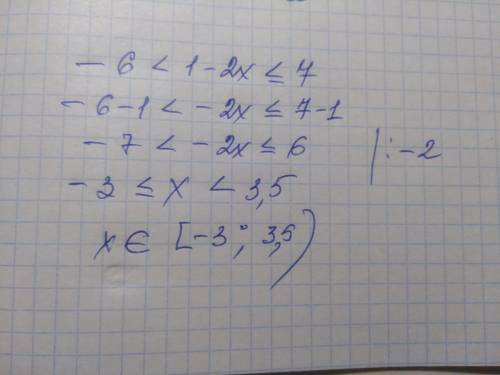 - 6 < 1 - 2x ≤ 7
- 6 - 1 < - 2x ≤ 7 - 1
- 7 < - 2x ≤ 6 | : -2
- 3 ≤ x < 3,5
x ∈ [-3 ; 3,5)